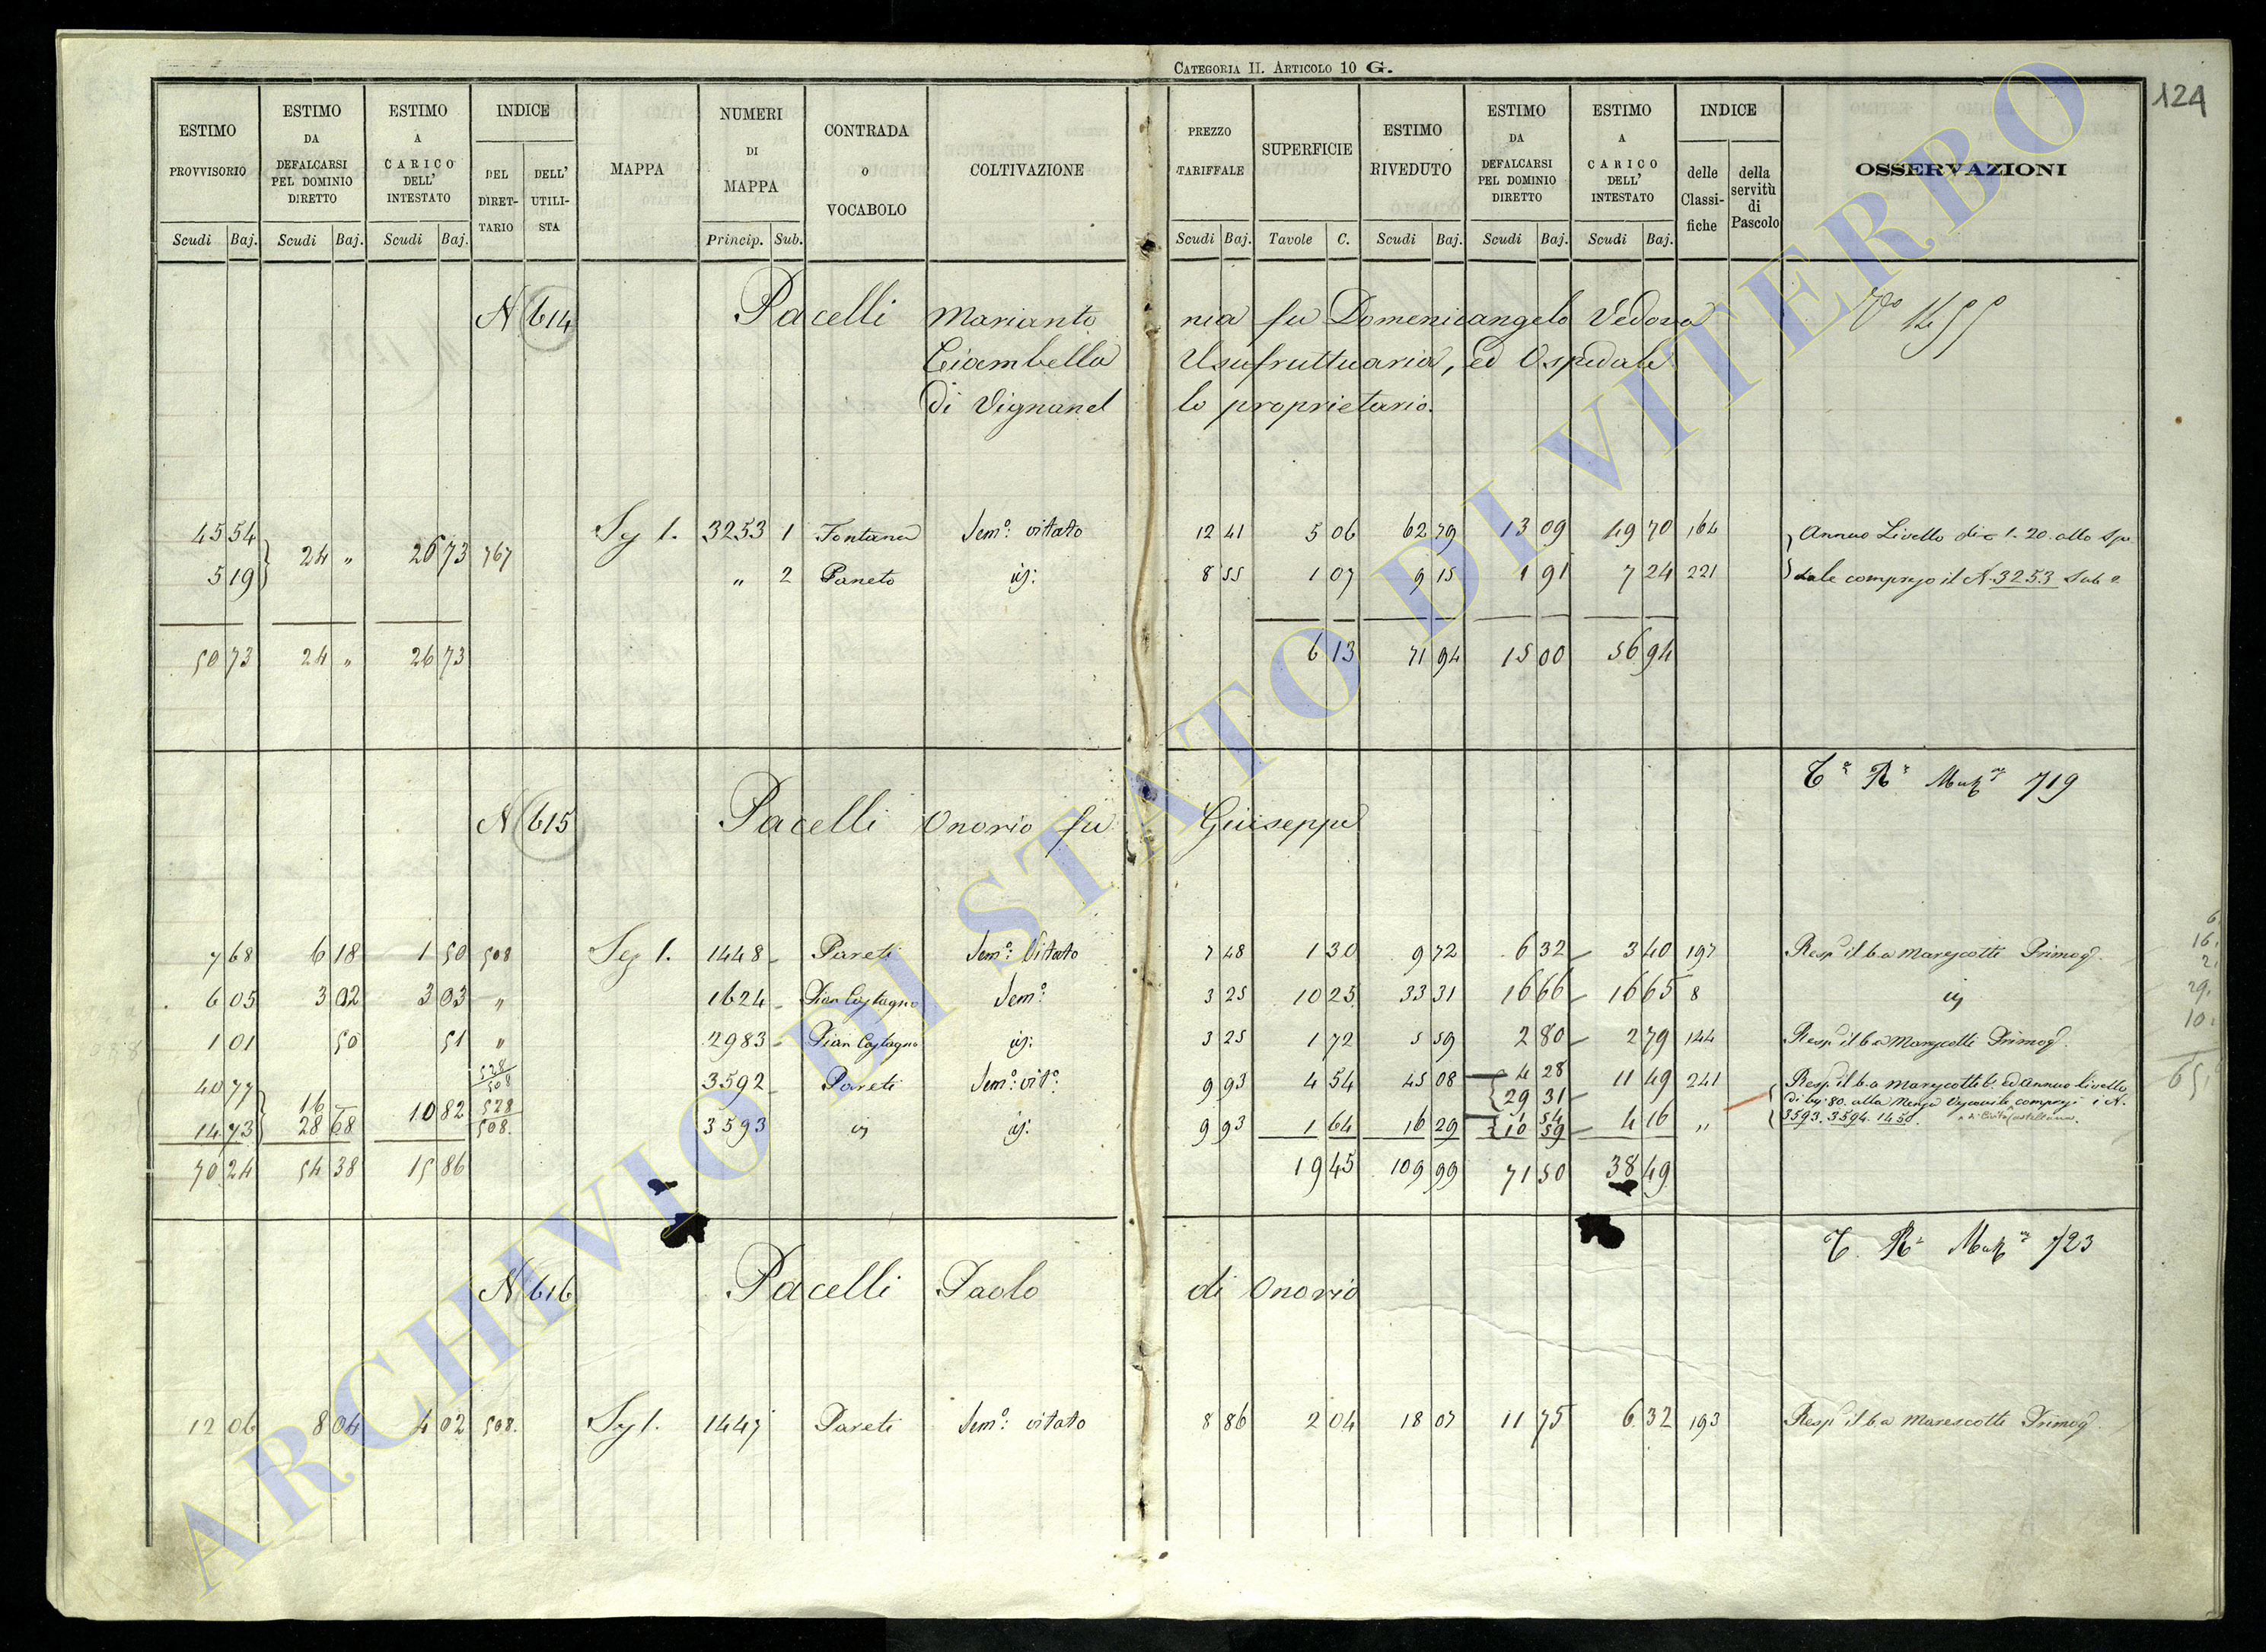 CATEGORIA II. ARTICOLO 10 G.
124
ESTIMO PROVVISORIO
ESTIMO DA DEFALCARSI PEL DOMINIO DIRETTO
ESTIMO A CARICO DELL' INTESTATO
INDICE
DEL DIRET-TARIO
DELL' UTILI-STA
MAPPA
NUMERI DI MAPPA
CONTRADA o VOCABOLO
COLTIVAZIONE
PREZZO TARIFFALE
SUPERFICIE
ESTIMO RIVEDUTO
ESTIMO DA DEFALCARSI PEL DOMINIO DIRETTO
ESTIMO A CARICO DELL' INTESTATO
INDICE
delle Classi-fiche
della servitù di Pascolo
OSSERVAZIONI
Scudi Baj. Scudi Baj. Scudi Baj. Princip. Sub. Scudi Baj. Tavole C. Scudi Baj. Scudi Baj. Scudi Baj.
N 614 Pacelli Marianto nia fu Domenicangelo Vedova
Ciambella Usufruttuaria, ed Ospedale
di Vignanel lo proprietario.
45 54 24 „ 26 73 767 Sez 1. 3253 1 Fontana Sem.o vitato 12 41 5 06 62 79 13 09 49 70 164 Annuo Livello di 1.20 allo Spe
5 19 „ 2 Paneto id: 8 55 1 07 9 15 1 91 7 24 221 dale compreso il N. 3253 Sub 2
50 73 24 „ 26 73 6 13 71 94 15 00 56 94
719
N 615 Pacelli Onorio fu Giuseppe
7 68 6 18 1 50 508 Sez 1. 1448 Pareti Sem.o Vitato 7 48 1 30 9 72 6 32 3 40 197 Resp il 6.a Marescotti Primog.
6 05 3 02 3 03 „ 1624 Pian Castagno Sem.o 3 25 10 25 33 31 16 66 16 65 8 id
1 01 50 51 „ 2983 Pian Castagno id: 3 25 1 72 5 59 2 80 2 79 144 Resp il 6.a Marescotti Primog.
40 77 16 10 82 528 508 3592 Pareti Sem.o vit.o 9 93 4 54 45 08 4 28 29 31 11 49 241 Resp. il 6.a Marescotti ed annuo livello
di bj: 80. alla Mensa Vescovile compresi i N.
14 73 28 68 528 508. 3593 id id: 9 93 1 64 16 29 1 54 10 59 4 16 „ 3593. 3594. 1450. di Civita Castellana.
70 24 54 38 15 86 19 45 109 99 71 50 38 49
723
N 616 Pacelli Paolo di Onorio
12 06 8 04 4 02 508. Sez 1. 1447 Pareti Sem.o vitato 8 86 2 04 18 07 11 75 6 32 193 Resp il 6.a Marescotti Primog.
ARCHIVIO DI STATO DI VITERBO